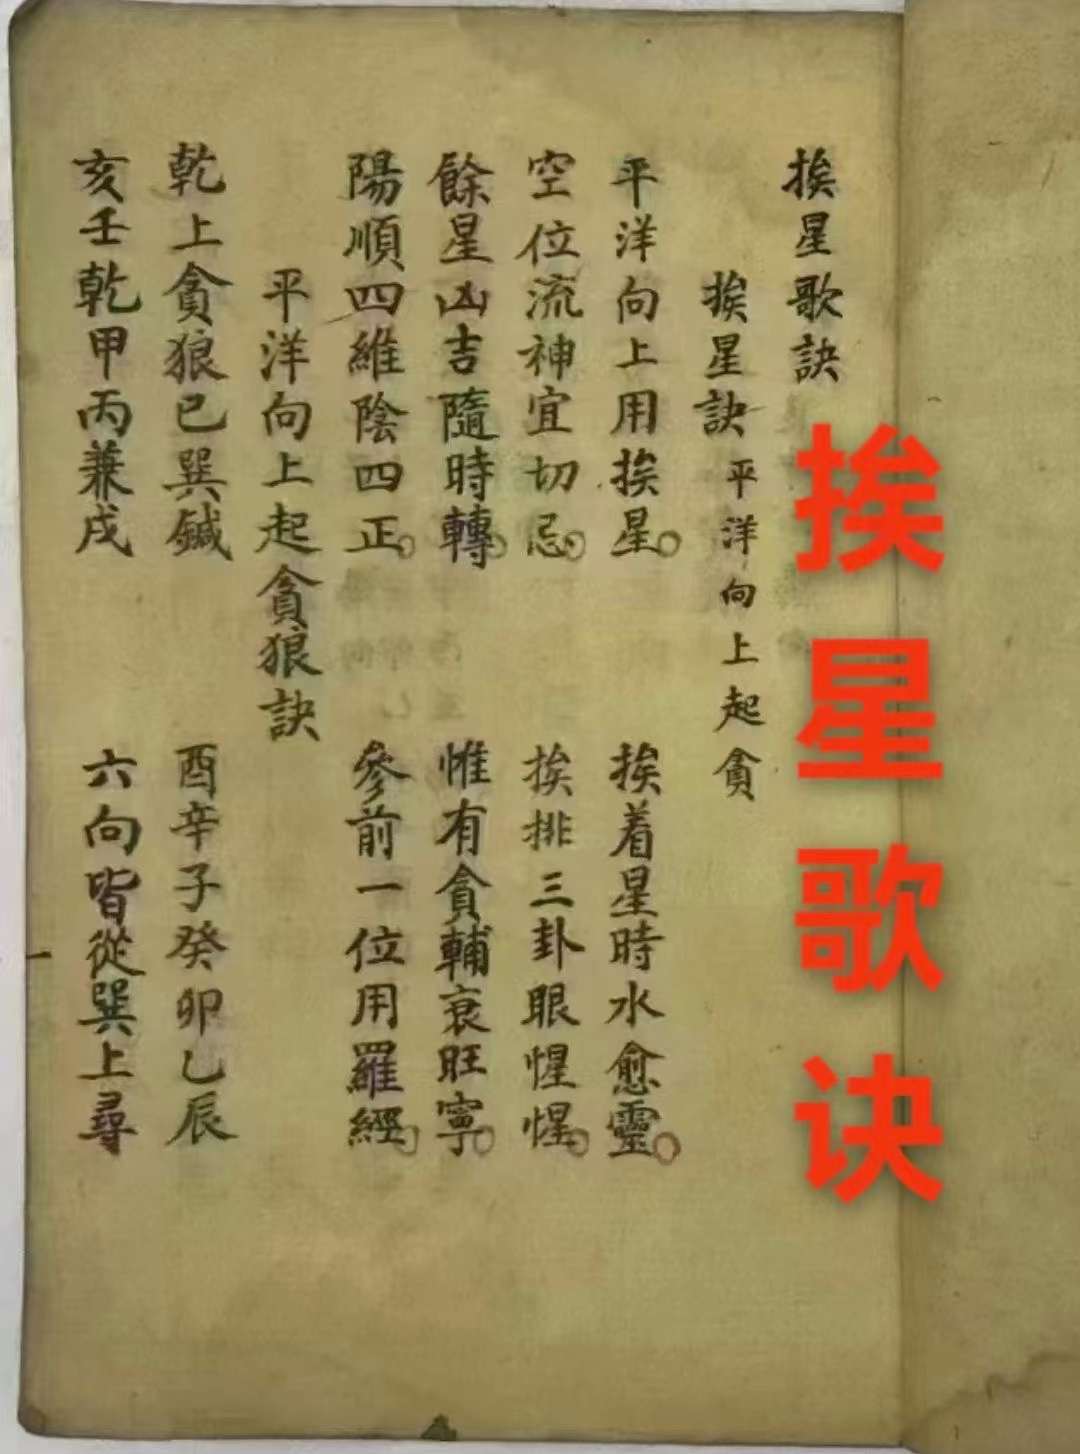 挨星歌訣
挨星訣 平洋向上起貪
平洋向上用挨星 挨着星時水愈靈
空位流神宜切忌 挨排三卦眼惺惺
餘星凶吉隨時轉 惟有貪輔衰旺寧
陽順四維陰四正 參前一位用羅經
平洋向上起貪狼訣
乾上貪狼已巽鍼 酉辛子癸卯乙辰
亥壬乾甲丙兼戌 六向皆從巽上尋
挨星歌诀